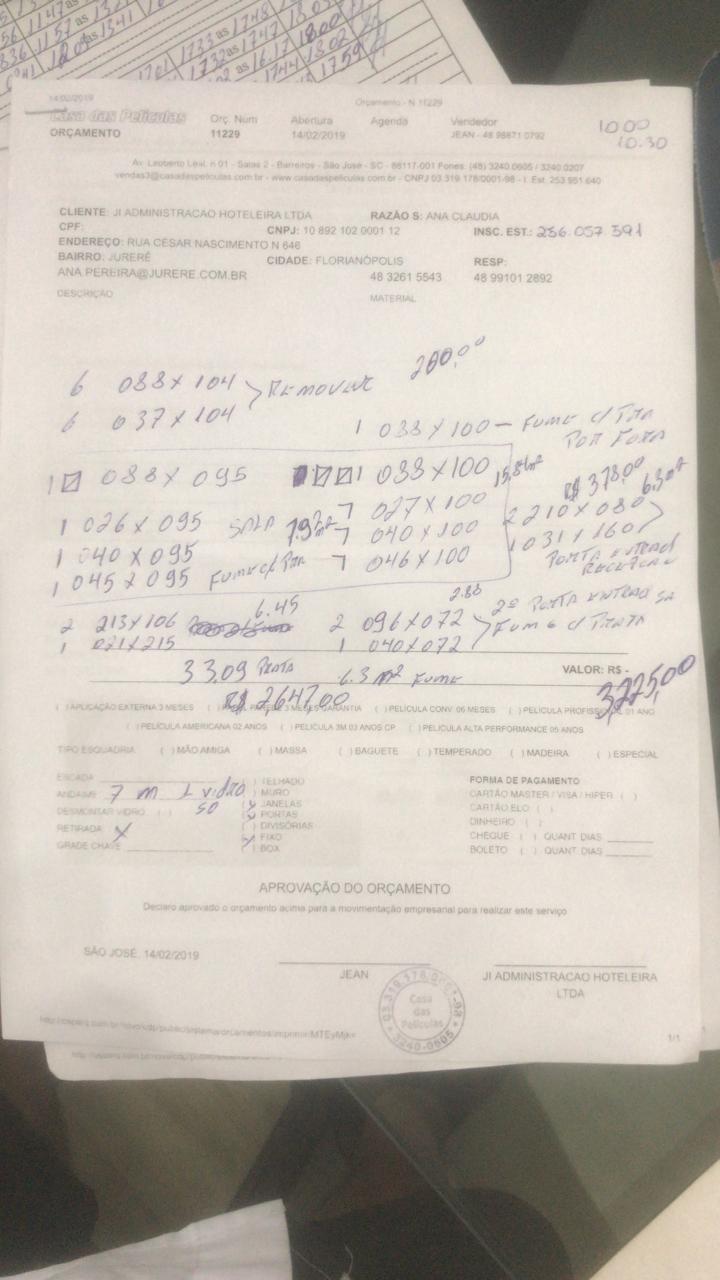 1147 as
1157 as 1341
1733 as 1748
1732 as 1747 1800
1744 1802
1759
14/02/2019
Orçamento - N 11229
Casa das Películas
ORÇAMENTO
Orç. Num
11229
Abertura
14/02/2019
Agenda
Vendedor
JEAN - 48 98871 0792
10:00
10:30
Av. Leoberto Leal, n 01 - Salas 2 - Barreiros - São José - SC - 88117-001 Fones: (48) 3240.0605 / 3240.0207
vendas3@casadaspeliculas.com.br - www.casadaspeliculas.com.br - CNPJ 03.319.178/0001-98 - I. Est. 253.951.640
CLIENTE: JI ADMINISTRACAO HOTELEIRA LTDA RAZÃO S: ANA CLAUDIA
CPF: CNPJ: 10 892 102 0001 12 INSC. EST.: 256.057.591
ENDEREÇO: RUA CÉSAR NASCIMENTO N 646
BAIRRO: JURERÊ CIDADE: FLORIANÓPOLIS RESP:
ANA.PEREIRA@JURERE.COM.BR 48 3261 5543 48 99101 2892
DESCRIÇÃO MATERIAL
6 088 X 104 REMOVER 200,00
6 037 X 104
1 088 X 100 - FUME C/ PTA
POR FORA
1 088 X 095 1 088 X 100
R$ 378,00 6.3 m²
1 026 X 095 SALA 7.9 m² 7 027 X 100 2 210 X 080
1 040 X 095 7 040 X 100 1 031 X 160
1 045 X 095 FUME C/ PTA 7 046 X 100 PORTA ENTRAD
RECEPCAO
2 213 X 106 6.45 2 096 X 072 2.88 2ª PORTA ENTRAD
1 021 X 215 1 040 X 072 FUME C/ PRATA
33,09 PRATA 6.3 m² FUME VALOR: R$ -
R$ 2,647,00 3,225,00
( ) APLICAÇÃO EXTERNA 3 MESES 3 MESES GARANTIA ( ) PELICULA CONV. 06 MESES ( ) PELICULA PROFISSIONAL 01 ANO
( ) PELICULA AMERICANA 02 ANOS ( ) PELICULA 3M 03 ANOS CP ( ) PELICULA ALTA PERFORMANCE 05 ANOS
TIPO ESQUADRIA: ( ) MÃO AMIGA ( ) MASSA ( ) BAGUETE ( ) TEMPERADO ( ) MADEIRA ( ) ESPECIAL
ESCADA
ANDAIME 7 m 1 VIDRO
SO
DESMONTAR VIDRO ( )
RETIRADA X
GRADE CHAVE
( ) TELHADO
( ) MURO
(x) JANELAS
(x) PORTAS
( ) DIVISÓRIAS
(x) FIXO
( ) BOX
FORMA DE PAGAMENTO
CARTÃO MASTER / VISA / HIPER ( )
CARTÃO ELO ( )
DINHEIRO ( )
CHEQUE ( ) QUANT DIAS
BOLETO ( ) QUANT DIAS
APROVAÇÃO DO ORÇAMENTO
Declaro aprovado o orçamento acima para a movimentação empresarial para realizar este serviço
SÃO JOSÉ, 14/02/2019
JEAN
JI ADMINISTRACAO HOTELEIRA
LTDA
Casa
das
Películas
3240-0605
1/1